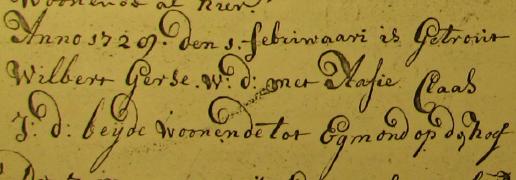 Woonende al hier.
Anno 1729. den 1. febriwaari is Getrout
Wilbert Gerse. W: d: met Aafie Claas
J: d: beyde Woonende tot Egmond op d hof